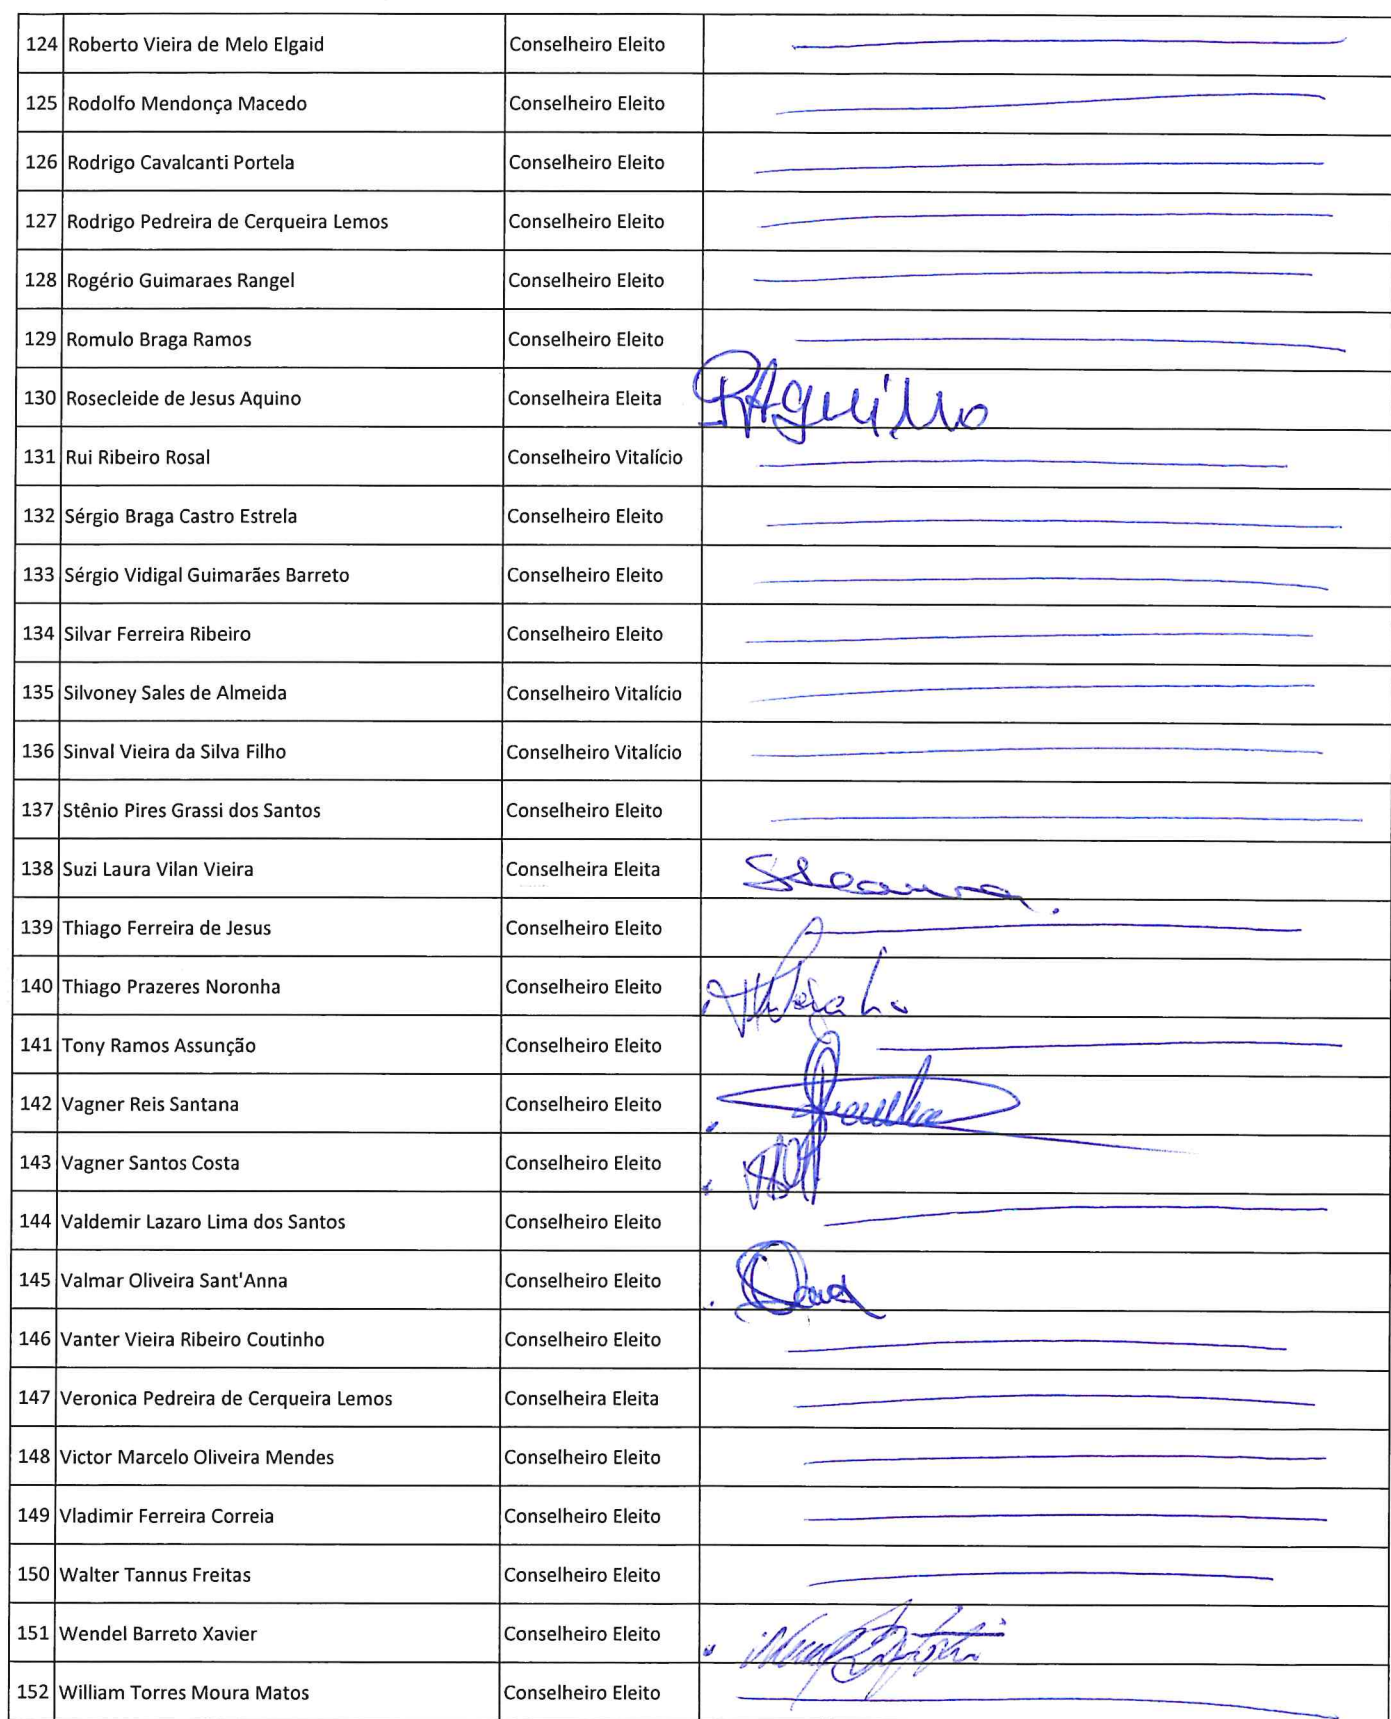 124 Roberto Vieira de Melo Elgaid Conselheiro Eleito
125 Rodolfo Mendonça Macedo Conselheiro Eleito
126 Rodrigo Cavalcanti Portela Conselheiro Eleito
127 Rodrigo Pedreira de Cerqueira Lemos Conselheiro Eleito
128 Rogério Guimaraes Rangel Conselheiro Eleito
129 Romulo Braga Ramos Conselheiro Eleito
130 Rosecleide de Jesus Aquino Conselheira Eleita
131 Rui Ribeiro Rosal Conselheiro Vitalício
132 Sérgio Braga Castro Estrela Conselheiro Eleito
133 Sérgio Vidigal Guimarães Barreto Conselheiro Eleito
134 Silvar Ferreira Ribeiro Conselheiro Eleito
135 Silvoney Sales de Almeida Conselheiro Vitalício
136 Sinval Vieira da Silva Filho Conselheiro Vitalício
137 Stênio Pires Grassi dos Santos Conselheiro Eleito
138 Suzi Laura Vilan Vieira Conselheira Eleita
139 Thiago Ferreira de Jesus Conselheiro Eleito
140 Thiago Prazeres Noronha Conselheiro Eleito
141 Tony Ramos Assunção Conselheiro Eleito
142 Vagner Reis Santana Conselheiro Eleito
143 Vagner Santos Costa Conselheiro Eleito
144 Valdemir Lazaro Lima dos Santos Conselheiro Eleito
145 Valmar Oliveira Sant'Anna Conselheiro Eleito
146 Vanter Vieira Ribeiro Coutinho Conselheiro Eleito
147 Veronica Pedreira de Cerqueira Lemos Conselheira Eleita
148 Victor Marcelo Oliveira Mendes Conselheiro Eleito
149 Vladimir Ferreira Correia Conselheiro Eleito
150 Walter Tannus Freitas Conselheiro Eleito
151 Wendel Barreto Xavier Conselheiro Eleito
152 William Torres Moura Matos Conselheiro Eleito